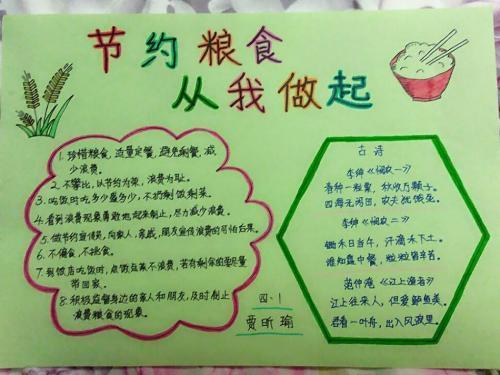 节约粮食
从我做起
1. 珍惜粮食，适量定餐，避免剩餐，减
少浪费。
2. 不攀比，以节约为荣，浪费为耻。
3. 吃饭时吃多少盛多少，不扔剩饭剩菜。
4. 看到浪费现象勇敢地起来制止，尽力减少浪费。
5. 做节约宣传员，向家人、亲戚、朋友宣传浪费的可怕后果。
6. 不偏食，不挑食。
7. 到饭店吃饭时，点饭点菜不浪费，若有剩余的要尽量
带回家。
8. 积极监督身边的家人和朋友，及时制止
浪费粮食的现象。
四·1
贾昕瑜
古诗
李绅《悯农一》
春种一粒粟，秋收万颗子。
四海无闲田，农夫犹饿死。
李绅《悯农二》
锄禾日当午，汗滴禾下土。
谁知盘中餐，粒粒皆辛苦。
范仲淹《江上渔者》
江上往来人，但爱鲈鱼美。
君看一叶舟，出入风波里。